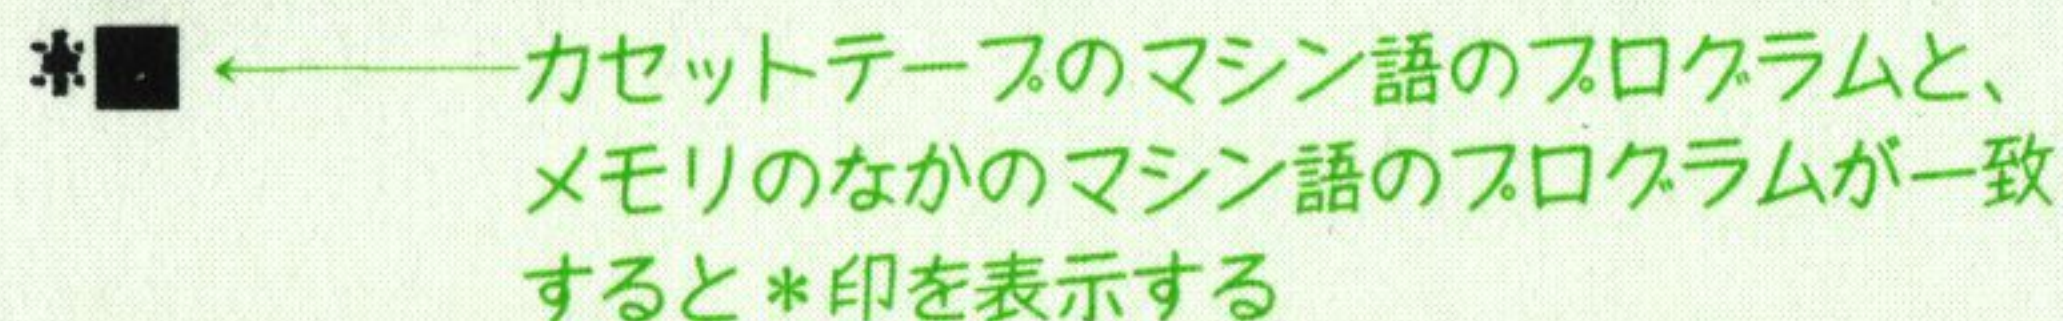 *■ ← カセットテープのマシン語のプログラムと、
メモリのなかのマシン語のプログラムが一致
すると*印を表示する